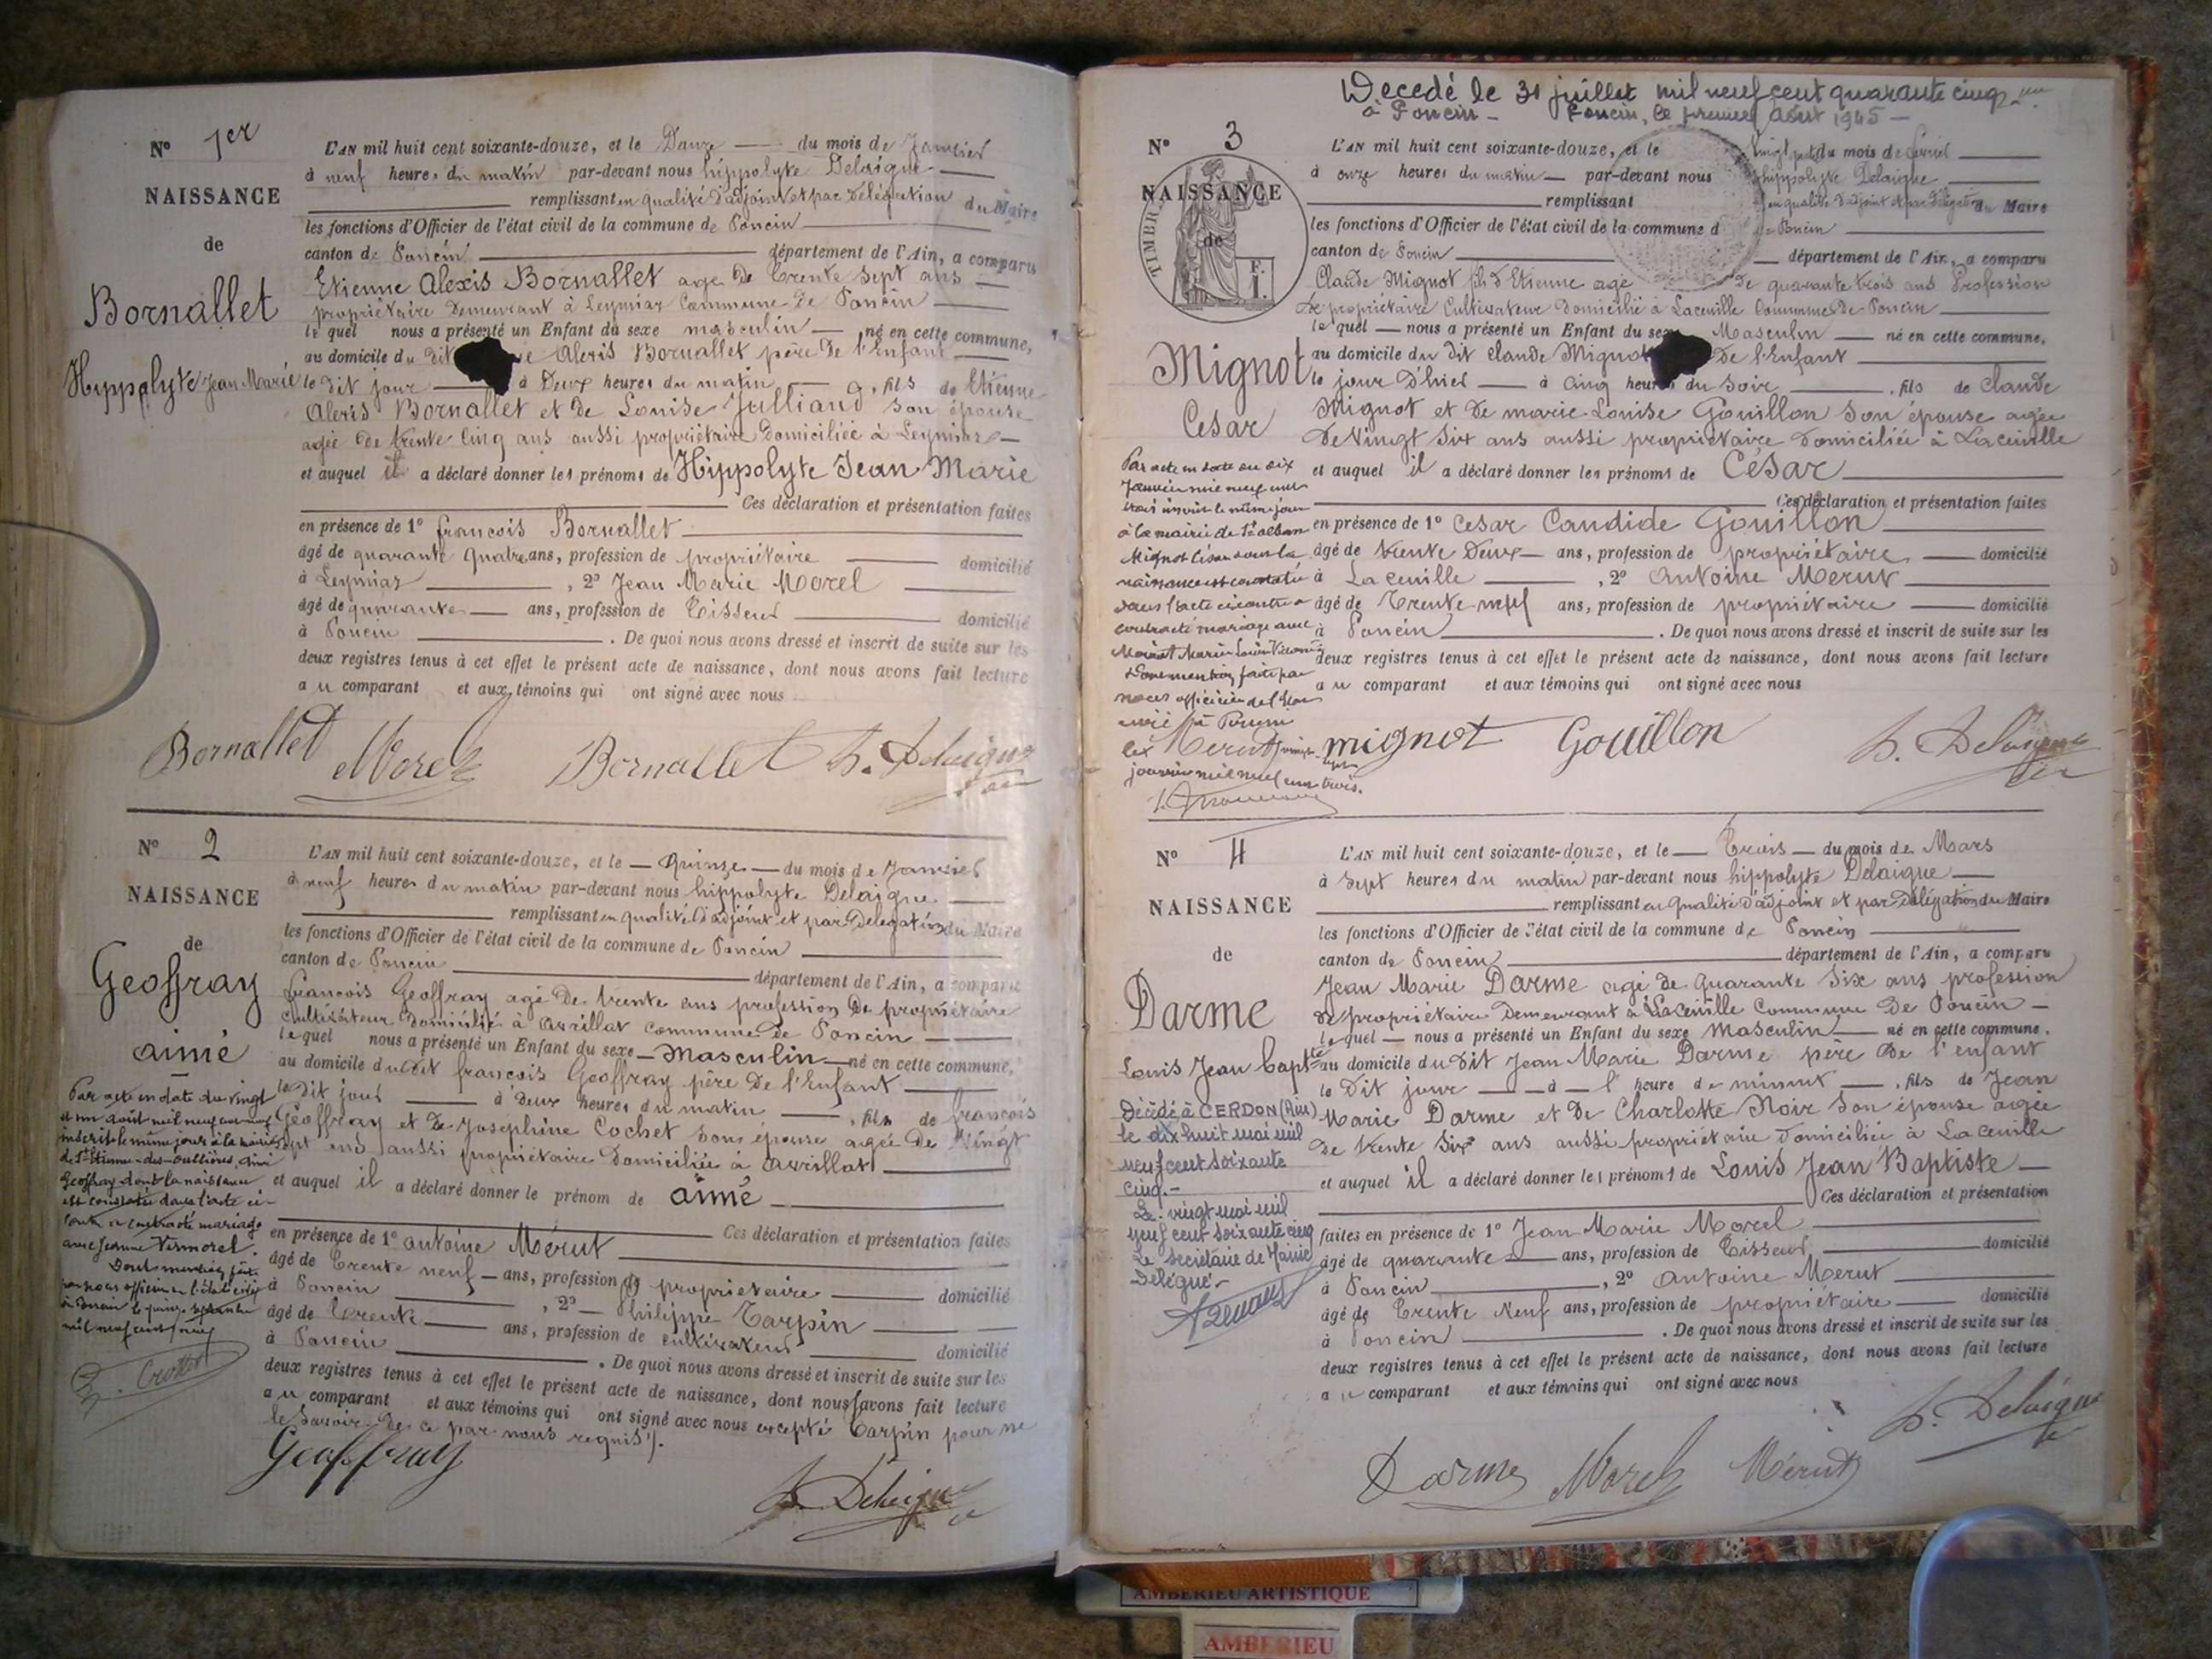 N° 1er
NAISSANCE
de
Bornallet
Hyppolyte Jean Marie
L'AN mil huit cent soixante-douze, et le Douze du mois de Janvier
à neuf heures du matin par-devant nous hippolyte Delaigue
remplissant en qualité d'adjoint et par Délégation du Maire
les fonctions d'Officier de l'état civil de la commune de Poncin
canton de Poncin département de l'Ain, a comparu
Etienne Alexis Bornallet agé de trente sept ans
propriétaire Demeurant à Leymiaz Commune de Poncin
le quel nous a présenté un Enfant du sexe masculin, né en cette commune,
au domicile du dit Alexis Bornallet père de l'Enfant
le dit jour à Deux heures du matin, fils de Etienne
Alexis Bornallet et de Louise Julliand son épouse
agée de trente cinq ans aussi propriétaire Domiciliée à Leymiaz
et auquel il a déclaré donner les prénoms de Hippolyte Jean Marie
Ces déclaration et présentation faites
en présence de 1° françois Bornallet
âgé de quarante quatre ans, profession de propriétaire domicilié
à Leymiaz, 2° Jean Marie Morel
âgé de quarante ans, profession de Tisseur domicilié
à Poncin. De quoi nous avons dressé et inscrit de suite sur les
deux registres tenus à cet effet le présent acte de naissance, dont nous avons fait lecture
au comparant et aux témoins qui ont signé avec nous
Bornallet Morel Bornallet h. Delaigue
N° 2
NAISSANCE
de
Geoffray
aimé
Par acte en date du vingt
et un août mil neuf cent neuf
inscrit le même jour à la mairie
de St Etienne-des-oullières, aimé
Geoffray dont la naissance
est constatée dans l'acte ci-
contre a contracté mariage
avec Jeanne Vermorel.
Dont mention faite
par nous officier de l'état civil
à Poncin le quinze septembre
mil neuf cent neuf
L'AN mil huit cent soixante-douze, et le Quinze du mois de Janvier
à neuf heures du matin par-devant nous hippolyte Delaigue
remplissant en qualité d'adjoint et par Délégation du Maire
les fonctions d'Officier de l'état civil de la commune de Poncin
canton de Poncin département de l'Ain, a comparu
françois Geoffray agé de trente ans profession de propriétaire
cultivateur Domicilié à Avrillat commune de Poncin
lequel nous a présenté un Enfant du sexe Masculin né en cette commune,
au domicile du dit françois Geoffray père de l'Enfant
le dit jour à deux heures du matin, fils de françois
Geoffray et de Josephine Cochet son épouse agée de Vingt
sept ans aussi propriétaire Domiciliée à Avrillat
et auquel il a déclaré donner le prénom de aimé
Ces déclaration et présentation faites
en présence de 1° antoine Mérut
âgé de trente neuf ans, profession de propriétaire domicilié
à Poncin, 2° Philippe Carpin
âgé de trente ans, profession de cultivateur domicilié
à Poncin. De quoi nous avons dressé et inscrit de suite sur les
deux registres tenus à cet effet le présent acte de naissance, dont nous avons fait lecture
au comparant et aux témoins qui ont signé avec nous excepté Carpin pour ne
le savoir de ce par nous requis.
Geoffray
h. Delaigue
Décédé le 31 juillet mil neuf cent quarante cinq
à Poncin - Poncin, le premier Août 1945
N° 3
NAISSANCE
de
TIMBRE
Mignot
Cesar
Par acte en date du dix
Janvier mil neuf cent
trois inscrit le même jour
à la mairie de St alban
Mignot César dont la
naissance est constatée
dans l'acte ci-contre a
contracté mariage avec
Dont mention faite par
nous officier de l'état
civil à Poncin
janvier mil neuf cent trois.
L'AN mil huit cent soixante-douze, et le vingt sept du mois de février
à onze heures du matin par-devant nous hippolyte Delaigue
remplissant en qualité d'adjoint et par délégation du Maire
les fonctions d'Officier de l'état civil de la commune de Poncin
canton de Poncin département de l'Ain, a comparu
Claude Mignot fils d'Etienne agé de quarante trois ans Profession
de propriétaire Cultivateur Domicilié à Laceuille Commune de Poncin
le quel nous a présenté un Enfant du sexe Masculin né en cette commune,
au domicile du dit claude Mignot de l'Enfant
le jour d'hier à cinq heures du soir, fils de claude
Mignot et de marie Louise Gouillon son épouse agée
de Vingt six ans aussi propriétaire domiciliée à Laceuille
et auquel il a déclaré donner les prénoms de César
Ces déclaration et présentation faites
en présence de 1° Cesar Candide Gouillon
âgé de trente Deux ans, profession de propriétaire domicilié
à Laceuille, 2° Antoine Merut
âgé de Trente neuf ans, profession de propriétaire domicilié
à Poncin. De quoi nous avons dressé et inscrit de suite sur les
deux registres tenus à cet effet le présent acte de naissance, dont nous avons fait lecture
au comparant et aux témoins qui ont signé avec nous
Merut mignot Gouillon h. Delaigue
N° 4
NAISSANCE
de
Darme
Louis Jean Bapte
Décédé à CERDON (Ain)
le dix huit mai mil
neuf cent soixante
cinq.-
Le vingt mai mil
neuf cent soixante cinq
Le secrétaire de Mairie
Délégué.-
L'AN mil huit cent soixante-douze, et le Trois du mois de Mars
à sept heures du matin par-devant nous hippolyte Delaigue
remplissant en qualité d'adjoint et par délégation du Maire
les fonctions d'Officier de l'état civil de la commune de Poncin
canton de Poncin département de l'Ain, a comparu
Jean Marie Darme agé de quarante six ans profession
de propriétaire Demeurant à Laceuille Commune de Poncin
le quel nous a présenté un Enfant du sexe Masculin né en cette commune,
au domicile du dit Jean Marie Darme père de l'enfant
le dit jour à l'heure de minuit, fils de Jean
Marie Darme et de Charlotte Noir son épouse agée
de trente six ans aussi propriétaire domiciliée à Laceuille
et auquel il a déclaré donner les prénoms de Louis Jean Baptiste
Ces déclaration et présentation
faites en présence de 1° Jean Marie Morel
âgé de quarante ans, profession de Tisseur domicilié
à Poncin, 2° Antoine Merut
âgé de Trente Neuf ans, profession de propriétaire domicilié
à Poncin. De quoi nous avons dressé et inscrit de suite sur les
deux registres tenus à cet effet le présent acte de naissance, dont nous avons fait lecture
au comparant et aux témoins qui ont signé avec nous
h. Delaigue
Darme Morel Mérut
AMBERIEU ARTISTIQUE
AMBERIEU